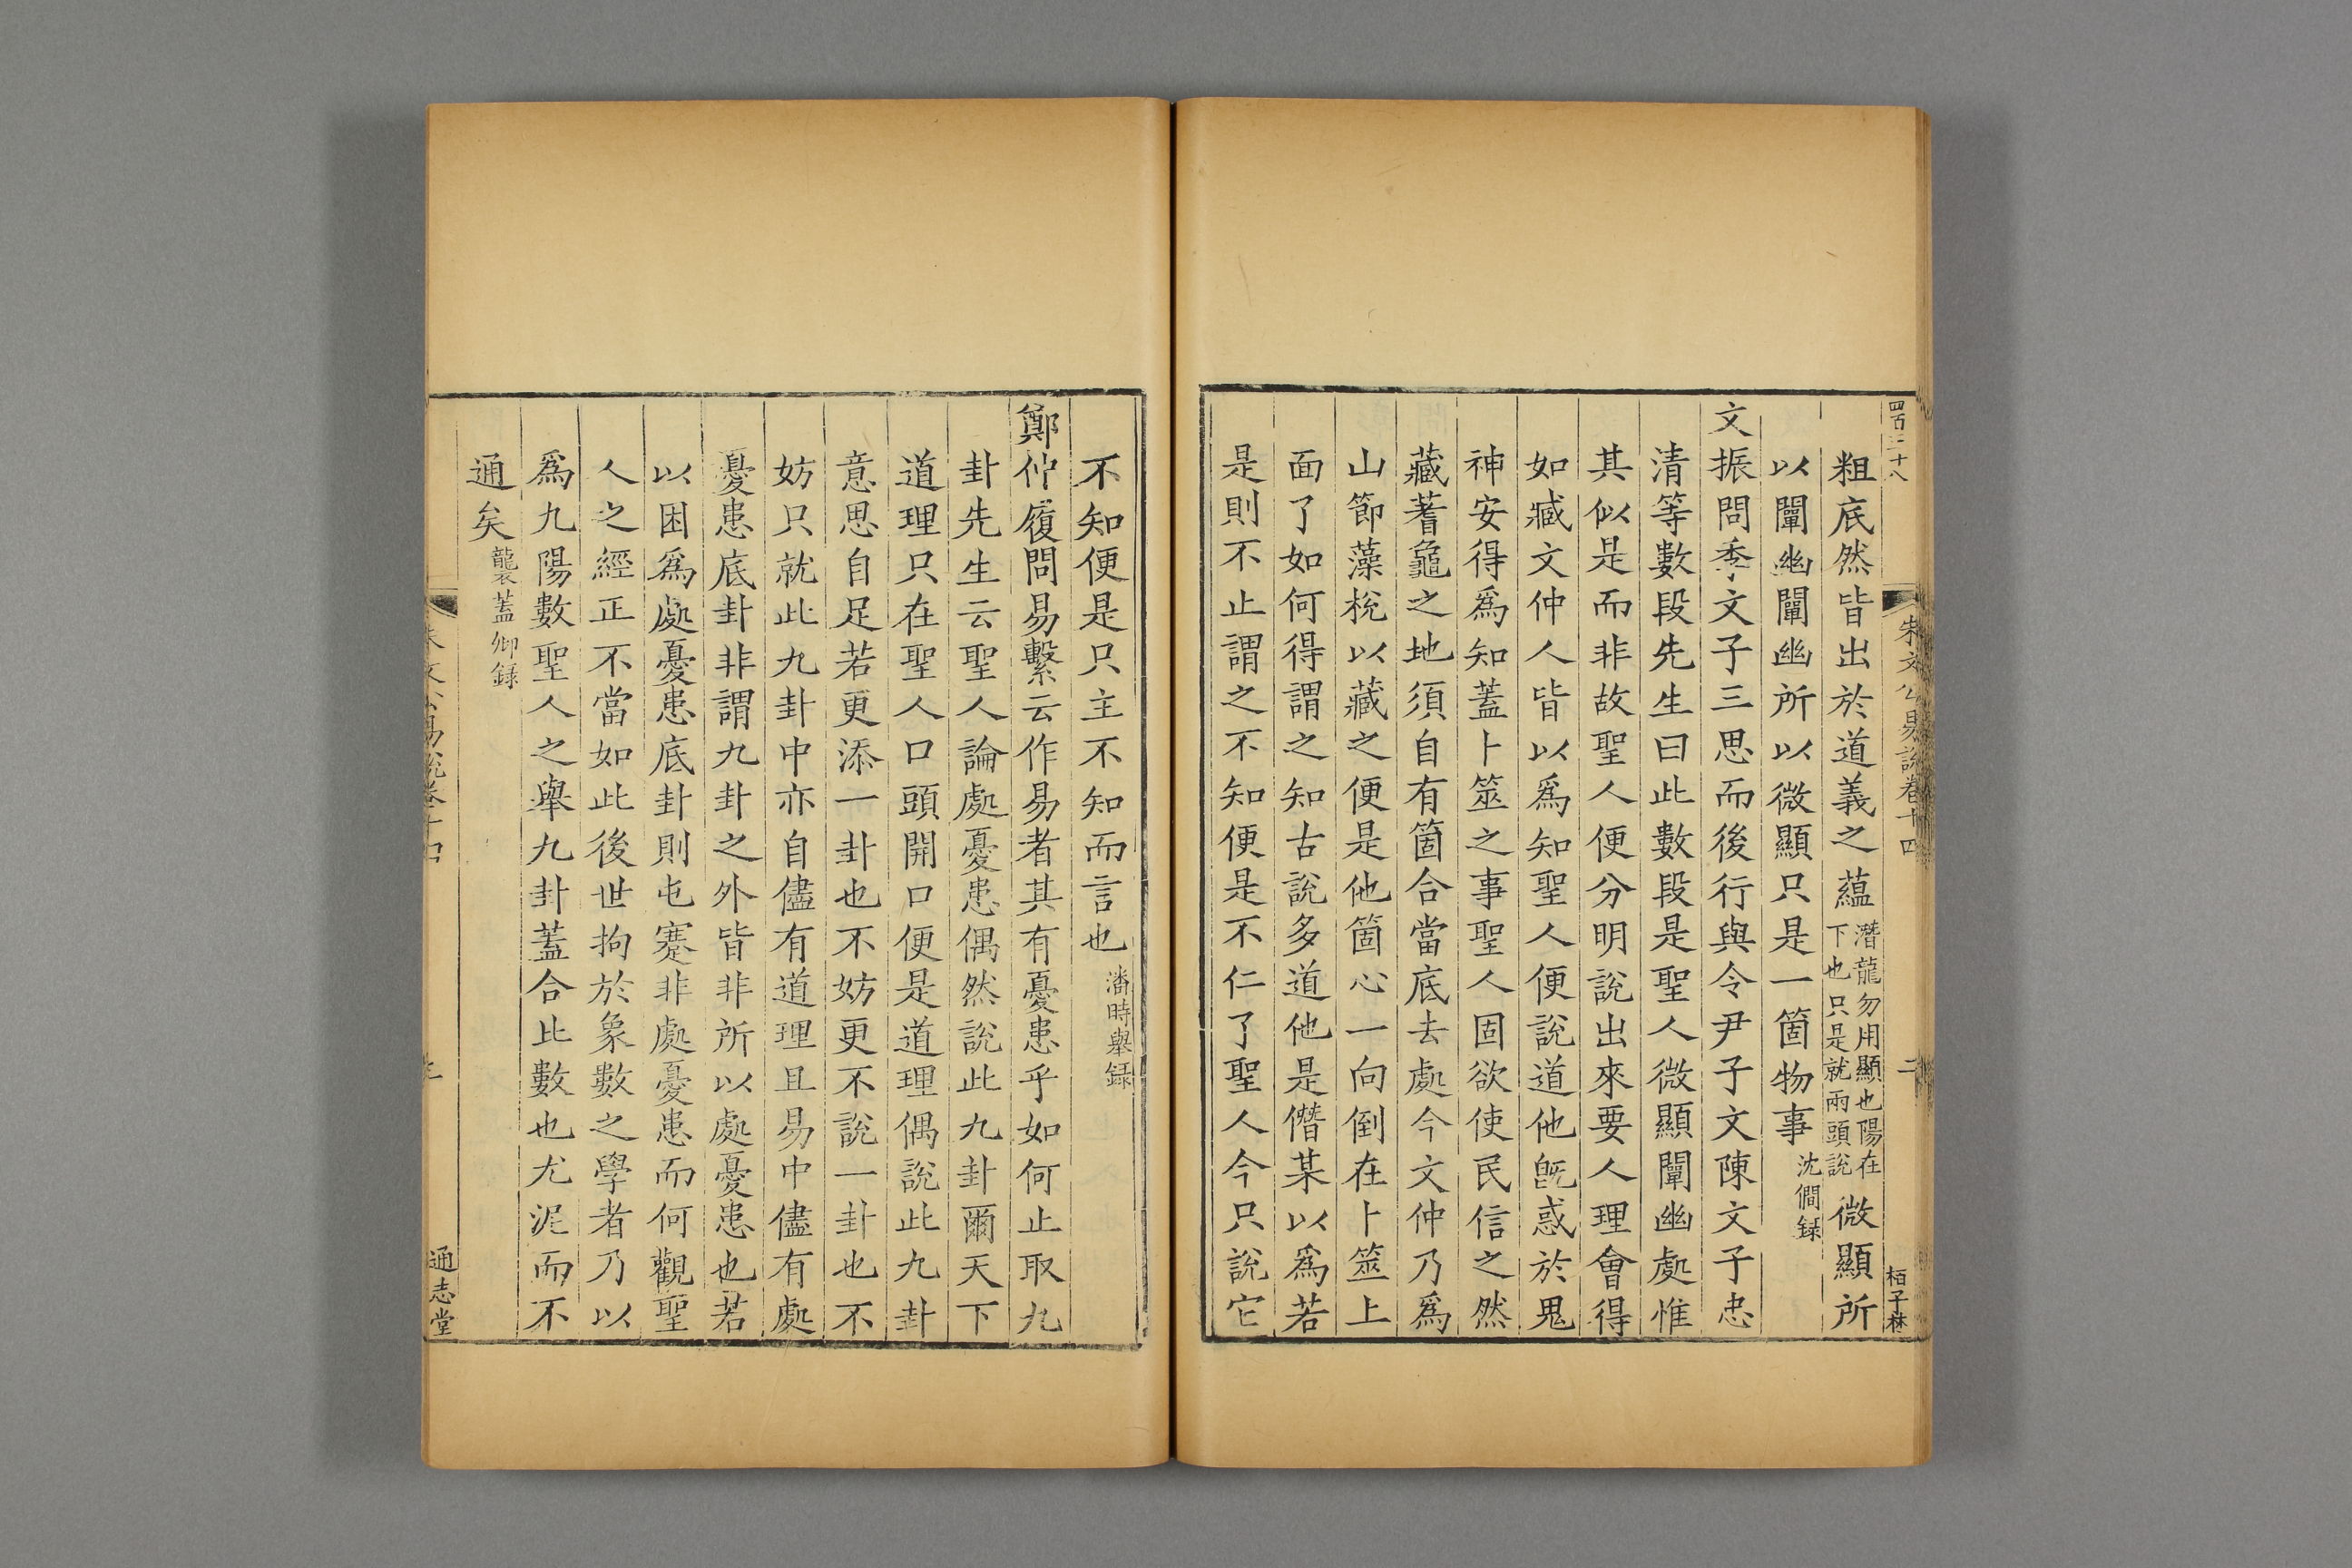 四百二十八
朱文公易說卷十四
二
栢子林
粗底然皆出於道義之蘊
潛龍勿用顯也陽在
下也只是就兩頭說
微顯所
以闡幽闡幽所以微顯只是一箇物事
沈僩録
文振問季文子三思而後行與令尹子文陳文子忠
清等數段先生曰此數段是聖人微顯闡幽處惟
其似是而非故聖人便分明說出來要人理會得
如臧文仲人皆以爲知聖人便說道他旣惑於鬼
神安得爲知蓋卜筮之事聖人固欲使民信之然
藏蓍龜之地須自有箇合當底去處今文仲乃爲
山節藻梲以藏之便是他箇心一向倒在卜筮上
面了如何得謂之知古說多道他是僭某以爲若
是則不止謂之不知便是不仁了聖人今只說它
不知便是只主不知而言也
潘時舉録
鄭仲履問易繫云作易者其有憂患乎如何止取九
卦先生云聖人論處憂患偶然說此九卦爾天下
道理只在聖人口頭開口便是道理偶說此九卦
意思自足若更添一卦也不妨更不說一卦也不
妨只就此九卦中亦自儘有道理且易中儘有處
憂患底卦非謂九卦之外皆非所以處憂患也若
以困爲處憂患底卦則屯蹇非處憂患而何觀聖
人之經正不當如此後世拘於象數之學者乃以
爲九陽數聖人之舉九卦蓋合此數也尤泥而不
通矣
襲蓋卿録
朱文公易說卷十四
通志堂